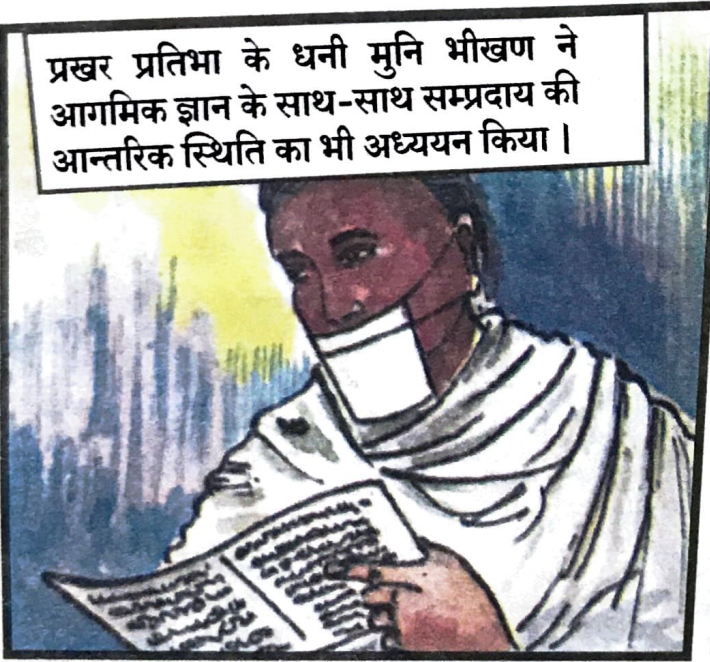 प्रखर प्रतिभा के धनी मुनि भीखण ने
आगमिक ज्ञान के साथ-साथ सम्प्रदाय की
आन्तरिक स्थिति का भी अध्ययन किया |